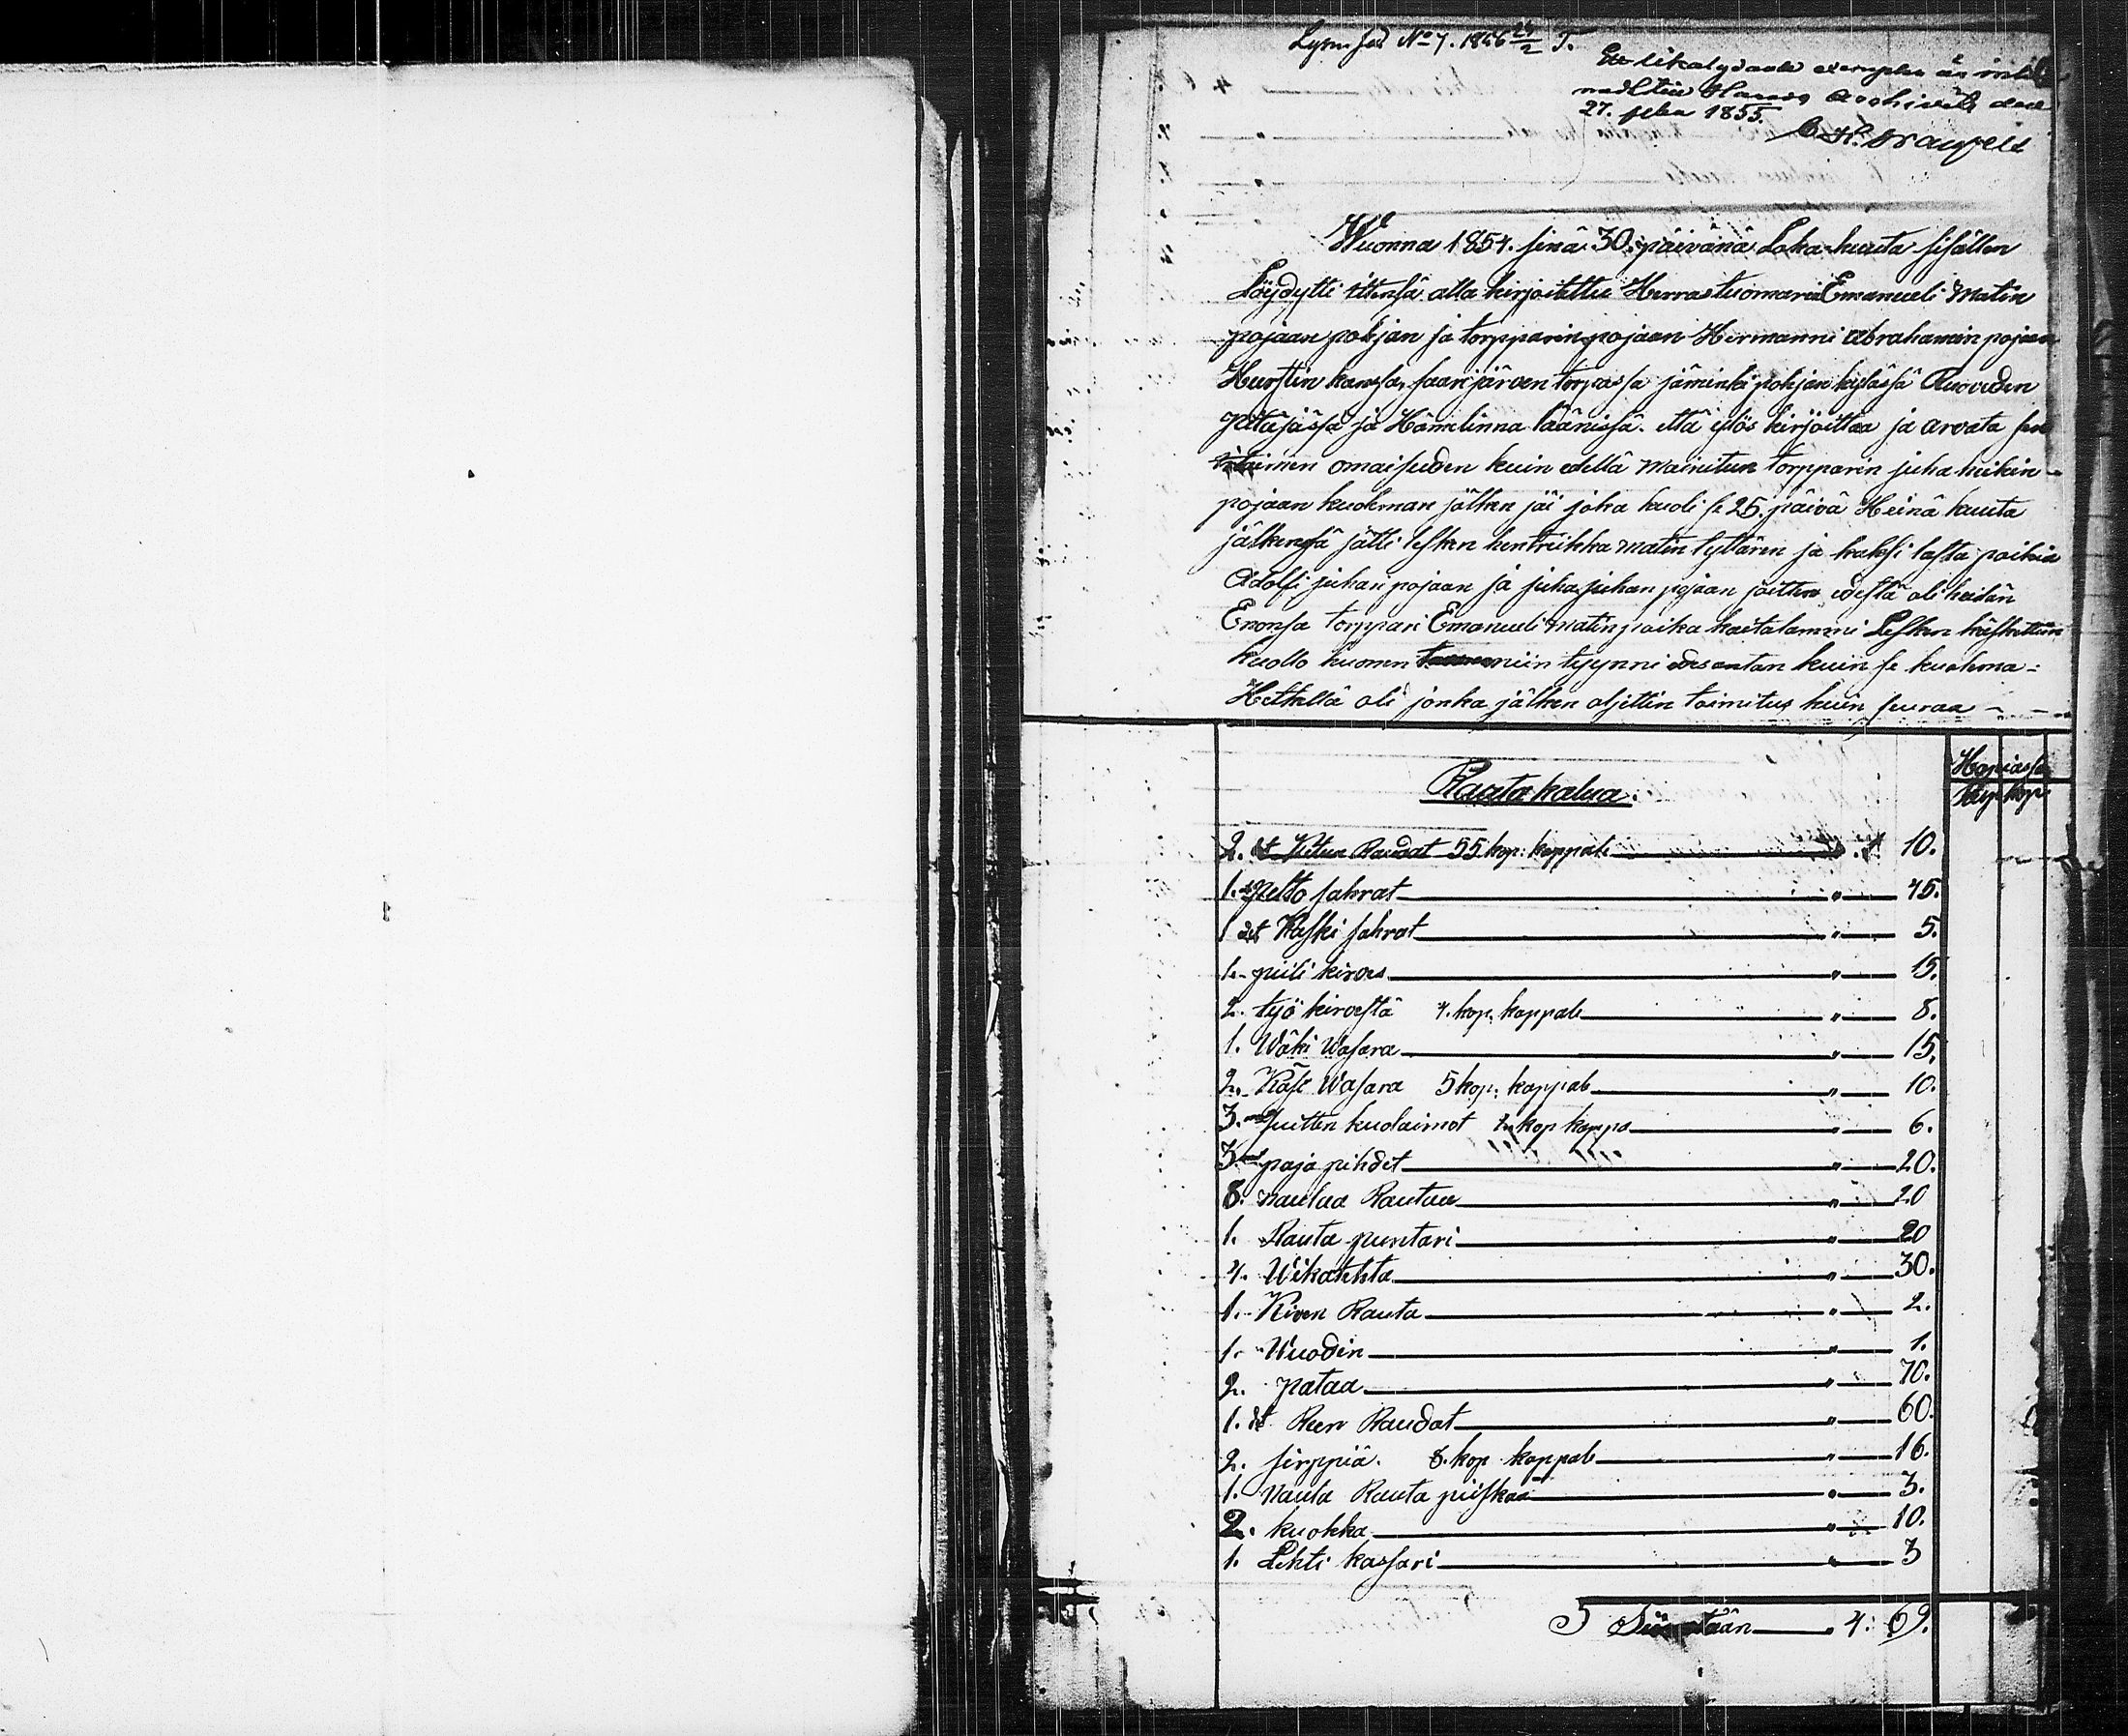 N:o 7. 1856 24/2 T.
Ett likalydande exemplar är inlä
nadt till Härads Archivet den
27. febr 1855.
Wuonna 1854. sinä 30. päivänä Loka-kuuta sisällen
Löydytti ittensä alla kirjoitettu Herrastuomarin Emanueli Matin
pojaan pohjan ja torpparin pojaan Hermanni Abrahamin pojaan
Hurstin kanssa, saarijärven torpassa jäminki pohjan kylässä Ruoveden
pitäjässä ja Hämelinna läänissä. että ylös kirjoittaa ja arvata sen
omaisuden kuin edellä mainitun torpparin juha heikin
pojaan kuokman jälken jäi joka kuoli se 25. päivä Heinä kuuta
jälkensä jätti lesken hentriikka matin tyttären ja kaksi lasta poikia
Adolfi juhan pojaan ja juha juhan pojaan joitten edestä oli heidän
Enonsa torppari Emanueli matinpoika kaitalammi Lesken käskettiin
kuollo huonen niin tyynni edesantan kuin se kuolema-
Hetkellä oli jonka jälken aljettin toimitus kuin seuraa
Hopiassa
Rauta kalua.
Rup kop
2. st Kitun Raudat 55 kop: kappale 1 10.
1. pelto sahrat " 45.
1 st Kaski sahrat " 5.
1. piili kirves " 15.
2. työ kirvestä 4. kop. kappale " 8.
1. Wäki Wasara " 15.
2. Käsi Wasara 5 kop: kappale " 10.
3. suitten kuolaimet 2 kop kappa " 6.
3. paja pihdet " 20.
8. naulaa Rautaa " 20
1. Rauta puntari " 20
4. Wikatehta " 30.
1. Kiven Rauta " 2.
1. Wuodin " 1.
2. pataa " 70.
1. st Reen Raudat " 60.
2. sirppiä. 8. kop kappale " 16.
1. naula Rauta piiskaa " 3.
2. kuokka " 10.
1. Lehti kassari " 3
Siirretään 4: 69.